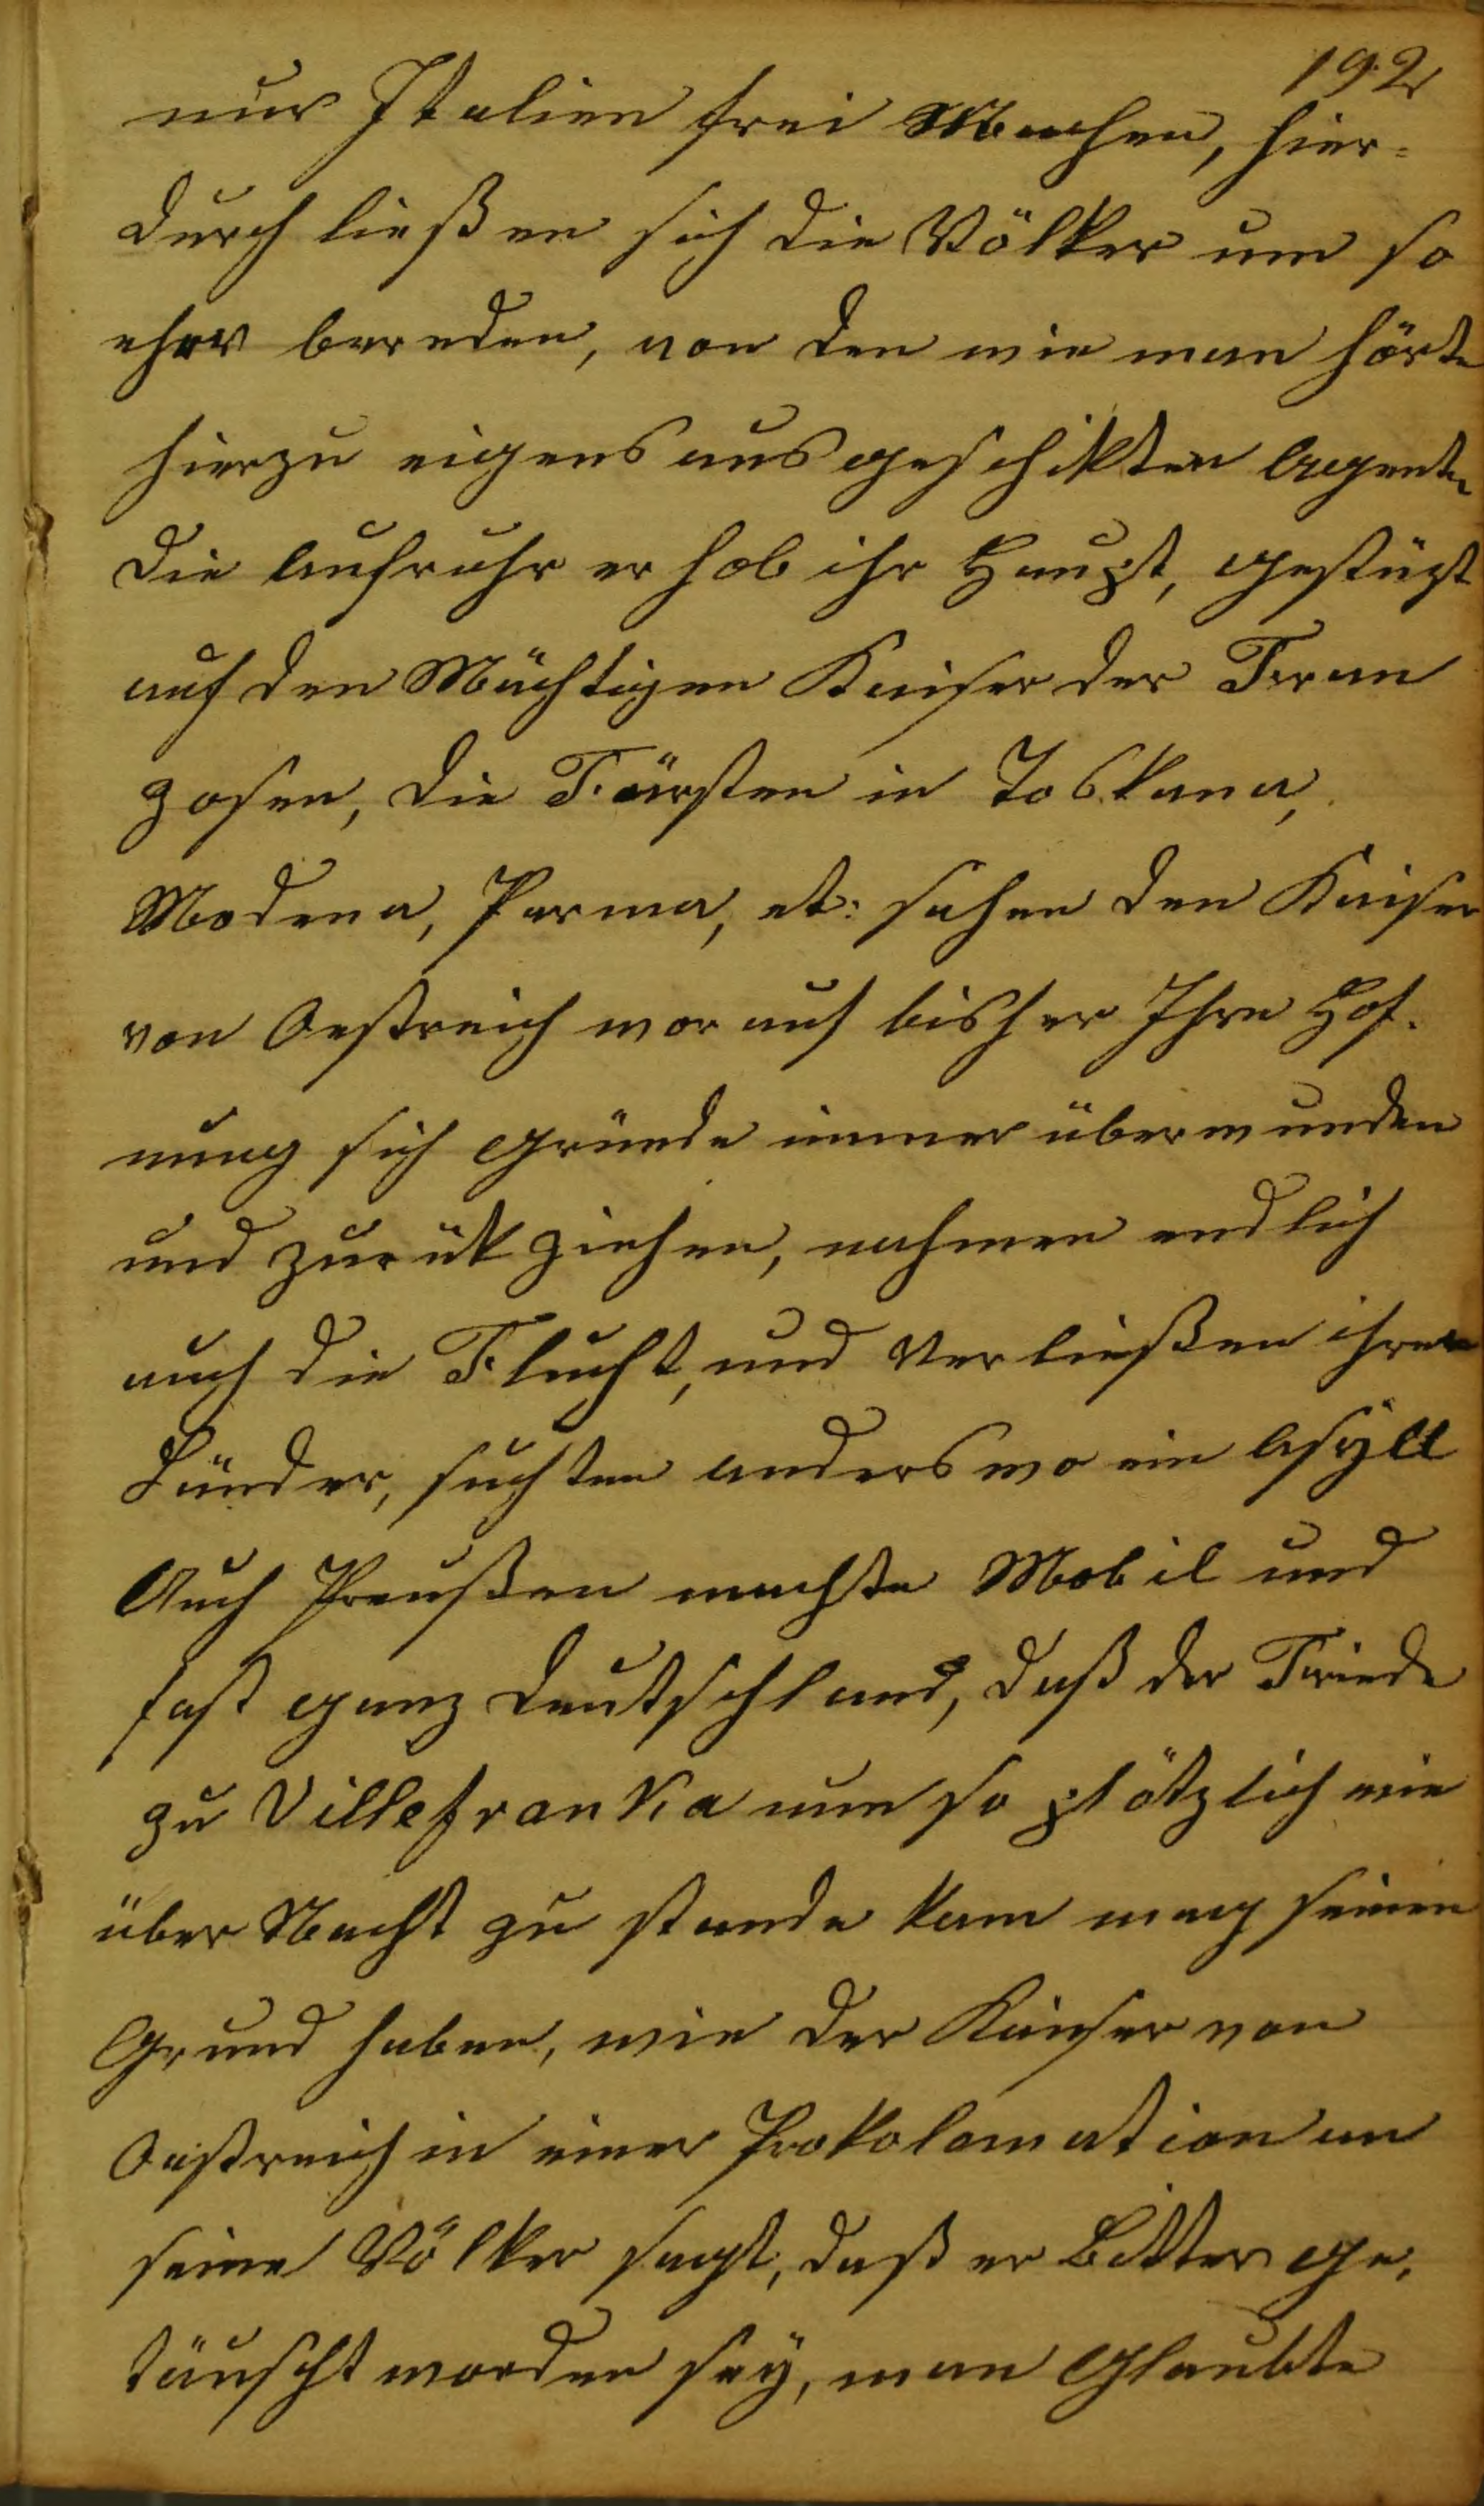 192
nur Italien frei Machen, hier=
durch ließen sich die Völker um so
eher bereden, von den wie man hörte
hierzu eigens ausgeschikten Agenten
die Aufruhr erhob ihr Haupt, gestüzt
auf den Mächtigen Kaiser der Fran
zosen, die Fürsten in Toskana,
Modena, Parma, et: sahen den Kaiser
von Oestreich worauf bisher Ihre Hof-
nung sich gründe immer überwunden
und zurükziehen, nahmen endlich
auch die Flucht, und Verließen ihre
Länder, suchten anderswo ein Asÿll
Auch Preußen machte Mobil und
fast ganz Deutschland, daß der Friede
zu Villefranka nun so plötzlich wie
über Nacht zu stande kam mag seinen
Grund haben, wie der Kaiser von
Oestreich in einer Prokolamation an
seine Völker sagt, daß er Bitter ge-
täuscht worden seÿ, man Glaubte